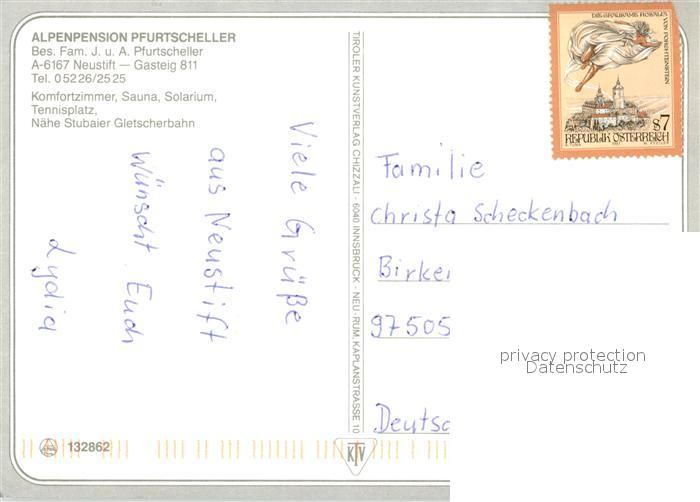 ALPENPENSION PFURTSCHELLER
Bes. Fam. J. u. A. Pfurtscheller
A-6167 Neustift — Gasteig 811
Tel. 0 52 26/25 25
Komfortzimmer, Sauna, Solarium,
Tennisplatz,
Nähe Stubaier Gletscherbahn
Viele Grüße
aus Neustift
wünscht Euch
Lydia
132862
TIROLER KUNSTVERLAG CHIZZALI · 6040 INNSBRUCK - NEU-RUM, KAPLANSTRASSE 10
KTV
DIE GRAUSAME ROSALIA
VON FORCHTENSTEIN
S7
REPUBLIK ÖSTERREICH
Familie
Christa Scheckenbach
Birke
97505
Deutsc
privacy protection
Datenschutz